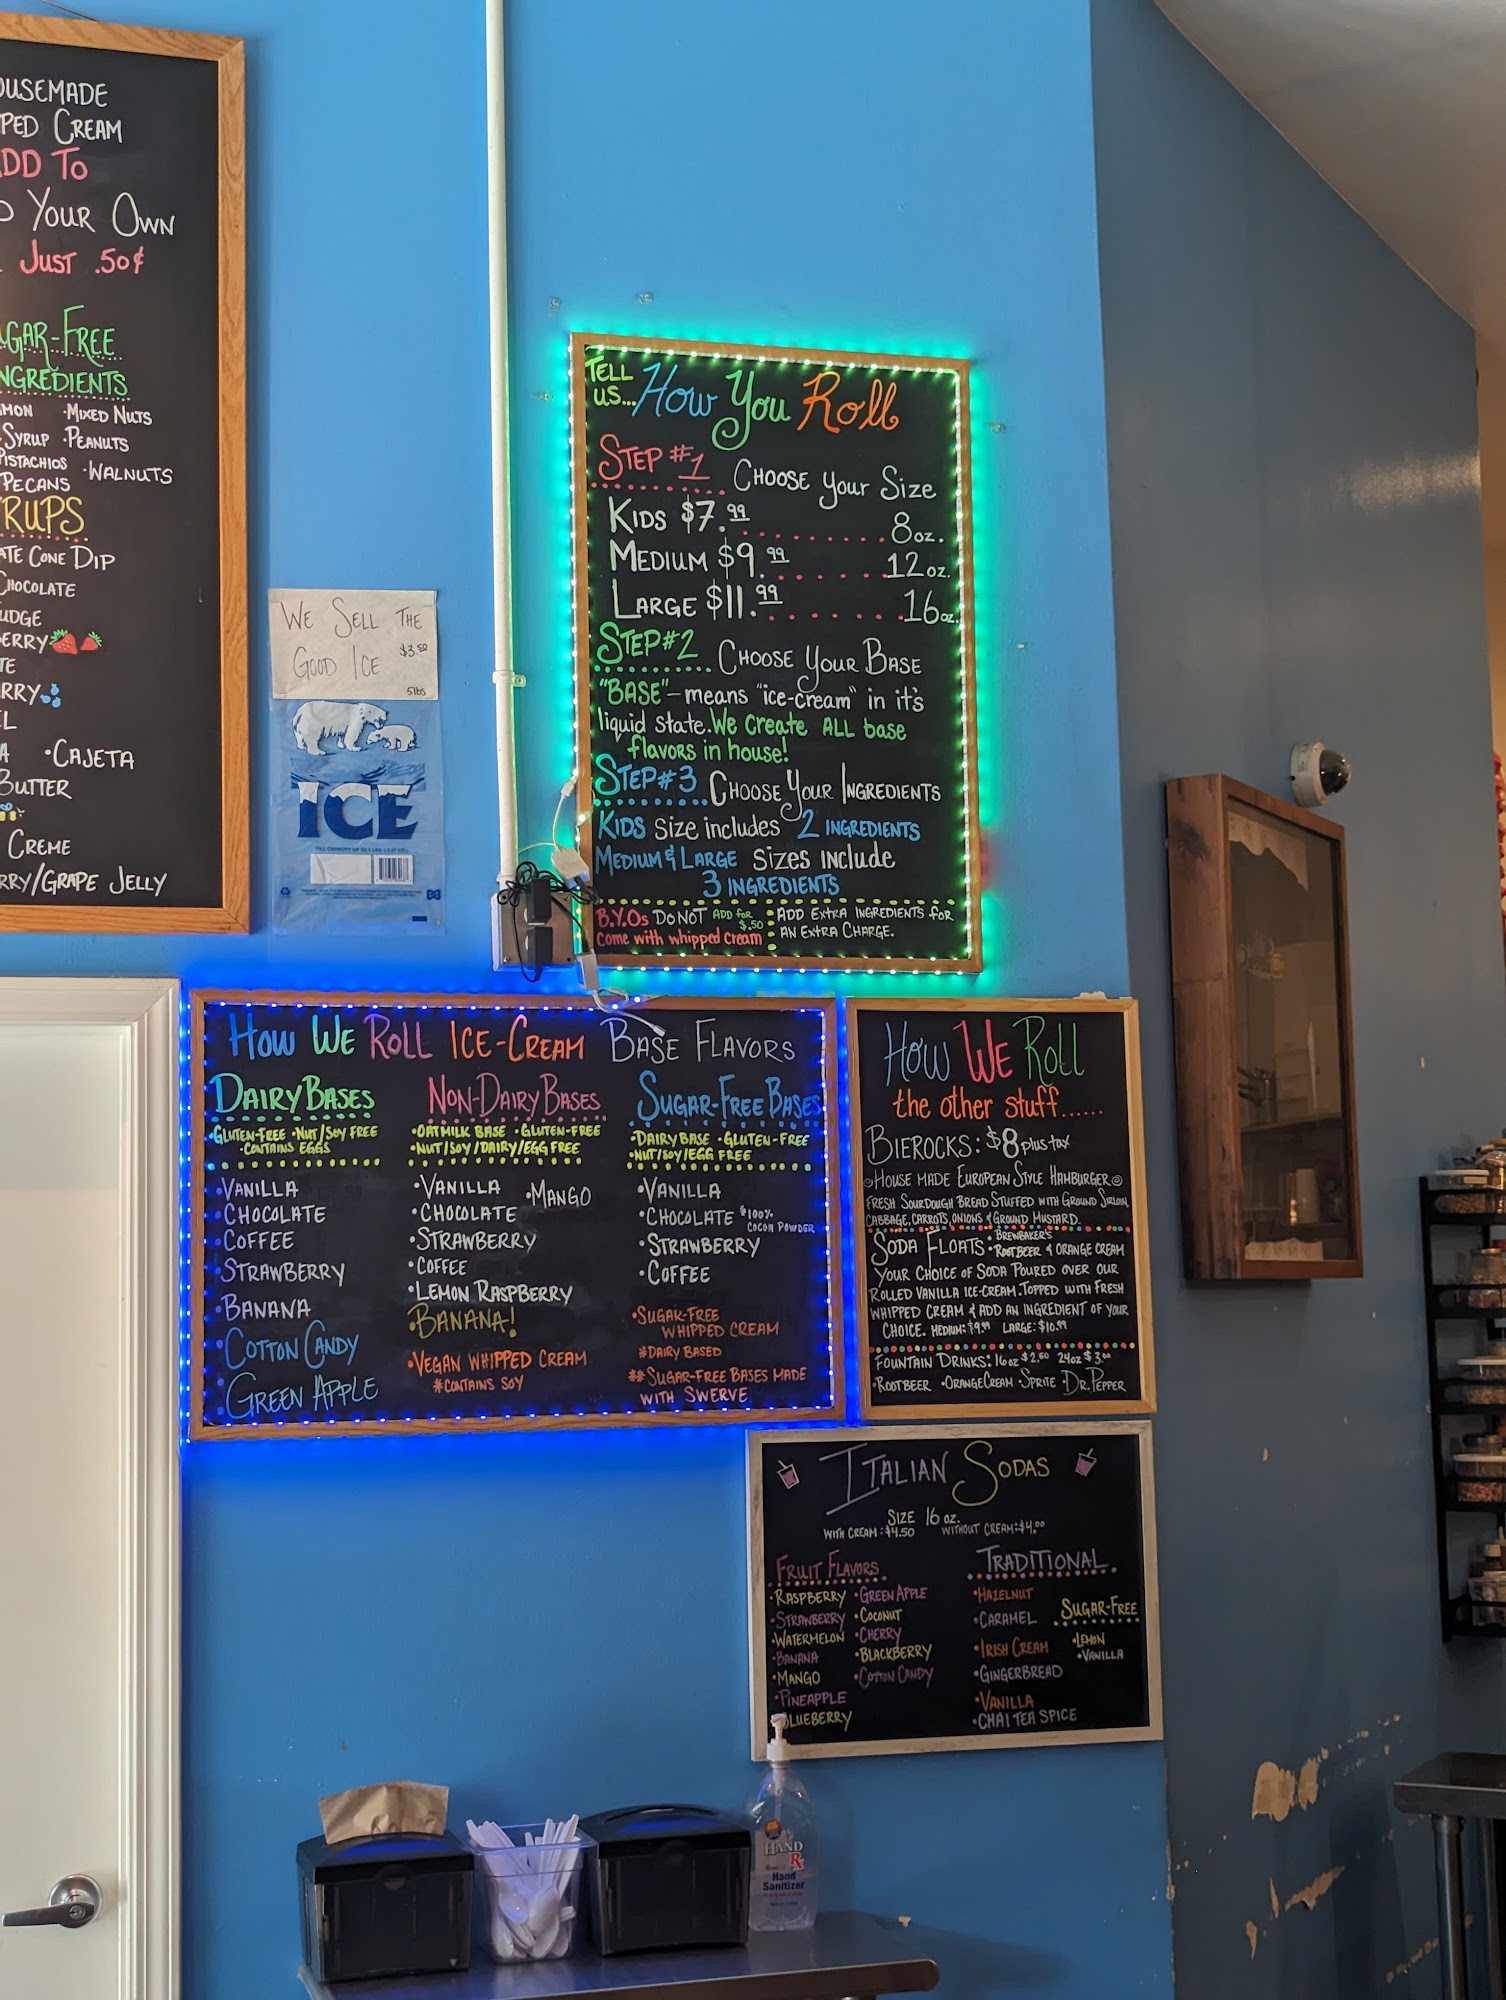 OUSEMADE
PED CREAM
DD TO
YOUR OWN
JUST .50¢
GAR-FREE
NGREDIENTS
MON ·MIXED NUTS
·SYRUP ·PEANUTS
PISTACHIOS ·WALNUTS
PECANS
RUPS
ATE CONE DIP
CHOCOLATE
UDGE
BERRY
TE
RRY
EL
A ·CAJETA
BUTTER
CREME
RRY/GRAPE JELLY
WE SELL THE
GOOD ICE $3.50
5lbs
ICE
TELL
US... How You Roll
STEP #1 CHOOSE your SIZE
KIDS $7.99 ........ 8oz.
MEDIUM $9.99 ....... 12oz.
LARGE $11.99 ...... 16oz.
STEP #2 CHOOSE YOUR BASE
"BASE"-means "ice-cream" in it's
liquid state. We create ALL base
flavors in house!
STEP #3 CHOOSE YOUR INGREDIENTS
KIDS Size includes 2 INGREDIENTS
MEDIUM & LARGE SIZES INCLUDE
3 INGREDIENTS
B.Y.Os DO NOT ADD for $.50
come with whipped cream
·ADD EXTRA INGREDIENTS FOR
AN EXTRA CHARGE.
HOW WE ROLL ICE-CREAM BASE FLAVORS
DAIRY BASES
·GLUTEN-FREE ·NUT/SOY FREE
·CONTAINS EGGS
·VANILLA
·CHOCOLATE
·COFFEE
·STRAWBERRY
·BANANA
·COTTON CANDY
·GREEN APPLE
NON-DAIRY BASES
·OATMILK BASE ·GLUTEN-FREE
·NUT/SOY/DAIRY/EGG FREE
·VANILLA ·MANGO
·CHOCOLATE
·STRAWBERRY
·COFFEE
·LEMON RASPBERRY
·BANANA!
·VEGAN WHIPPED CREAM
*CONTAINS SOY
SUGAR-FREE BASES
·DAIRY BASE ·GLUTEN-FREE
·NUT/SOY/EGG FREE
·VANILLA
·CHOCOLATE *100% COCOA POWDER
·STRAWBERRY
·COFFEE
·SUGAR-FREE
WHIPPED CREAM
*DAIRY BASED
**SUGAR-FREE BASES MADE
WITH SWERVE
HOW WE ROLL
the other stuff......
BIEROCKS: $8 plus tax
HOUSE MADE EUROPEAN STYLE HAMBURGER
FRESH SOURDOUGH BREAD STUFFED WITH GROUND SIRLOIN,
CABBAGE, CARROTS, ONIONS & GROUND MUSTARD.
SODA FLOATS: ·BREWBAKER'S
ROOTBEER & ORANGE CREAM
YOUR CHOICE OF SODA POURED OVER OUR
ROLLED VANILLA ICE-CREAM. TOPPED WITH FRESH
WHIPPED CREAM & ADD AN INGREDIENT OF YOUR
CHOICE. MEDIUM: $9.99 LARGE: $10.99
FOUNTAIN DRINKS: 16oz $2.50 24oz $3.00
·ROOTBEER ·ORANGE CREAM ·SPRITE ·DR. PEPPER
ITALIAN SODAS
SIZE 16 oz.
WITH CREAM: $4.50 WITHOUT CREAM: $4.00
FRUIT FLAVORS
·RASPBERRY ·GREEN APPLE
·STRAWBERRY ·COCONUT
·WATERMELON ·CHERRY
·BANANA ·BLACKBERRY
·MANGO ·COTTON CANDY
·PINEAPPLE
BLUEBERRY
TRADITIONAL
·HAZELNUT
·CARAMEL
·IRISH CREAM
·GINGERBREAD
·VANILLA
·CHAI TEA SPICE
SUGAR-FREE
·LEMON
·VANILLA
HAND
Rx
Hand
Sanitizer